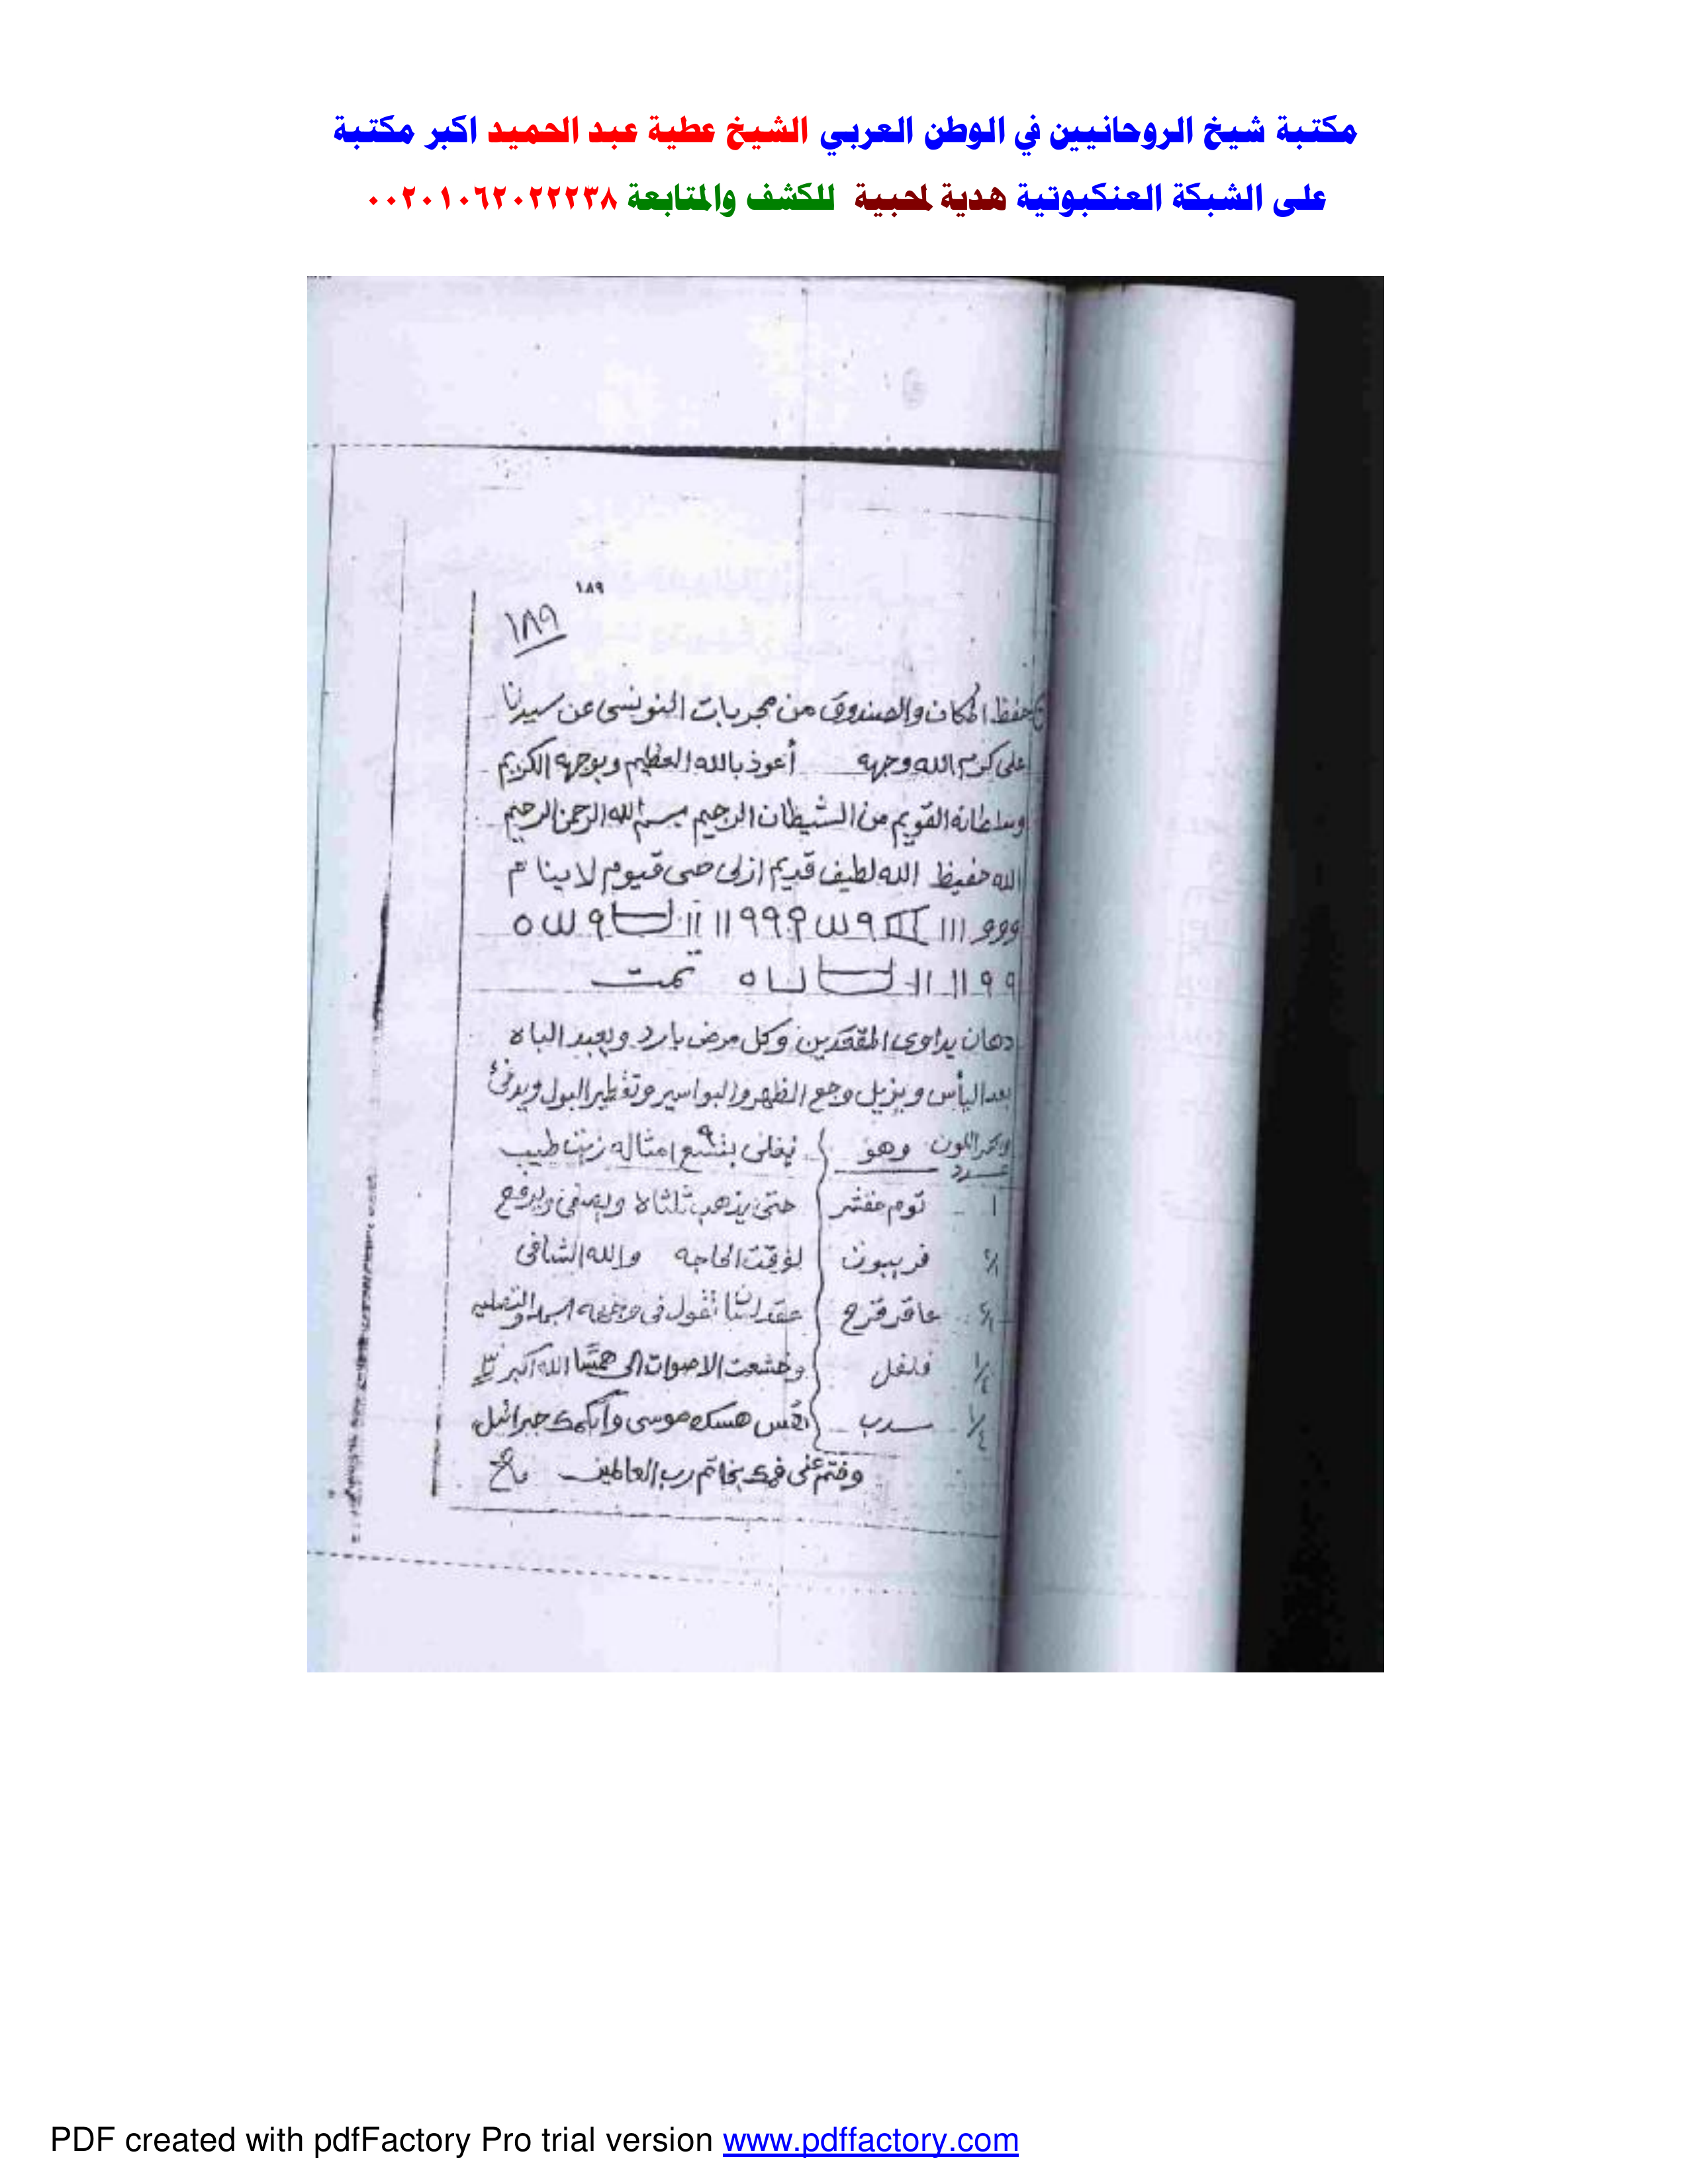 مكتبة شيخ الروحانيين في الوطن العربي الشيخ عطية عبد الحميد اكبر مكتبة
على الشبكة العنكبوتية هدية لمحبية للكشف والمتابعة ٠٠٢٠١٠٦٢٠٢٢٢٣٨
١٨٩
١٨٩
حفظ المكان والصندوق من مجربات التونسى عن سيدنا
على كرم الله وجهه أعوذ بالله العظيم وبوجهه الكريم
وسلطانه القويم من الشيطان الرجيم بسم الله الرحمن الرحيم
الله حفيظ الله لطيف قديم ازلى حى قيوم لا ينام
تمت
دهان يداوى المقعدين وكل مرض بارد ويعيد الباه
بعد اليأس ويزيل وجع الظهر والبواسير وتقطير البول ويدفئ
اللون وهو يغلى امثاله زيت طيب
١ توم مقشر حتى يذهب ثلثاه ويصفى ويرفع
فربيون لوقت الحاجه والله الشافى
عاقر قرح تقول فى
١/٤ فلفل وخشعت الاصوات الله أكبر
١/٤ سدب موسى جبرائيل
وختم على فمك بخاتم رب العالمين
PDF created with pdfFactory Pro trial version www.pdffactory.com